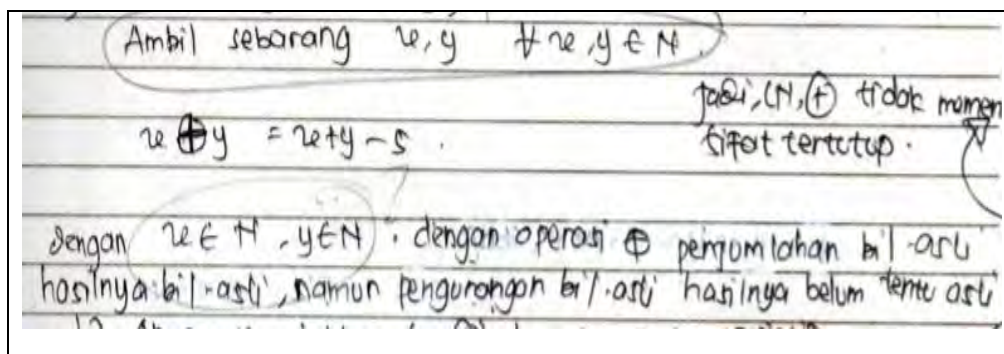 Ambil sebarang x, y ∀ x, y ∈ N.
x ⊕ y = x+y – 5.
jadi, (N, ⊕ tidak memen
sifat tertutup.
dengan x ∈ N, y ∈ N. dengan operasi ⊕ penjomlahan bil.asli
hasilnya bil.asli, namun pengurangan bil.asli hasilnya belum tentu asli